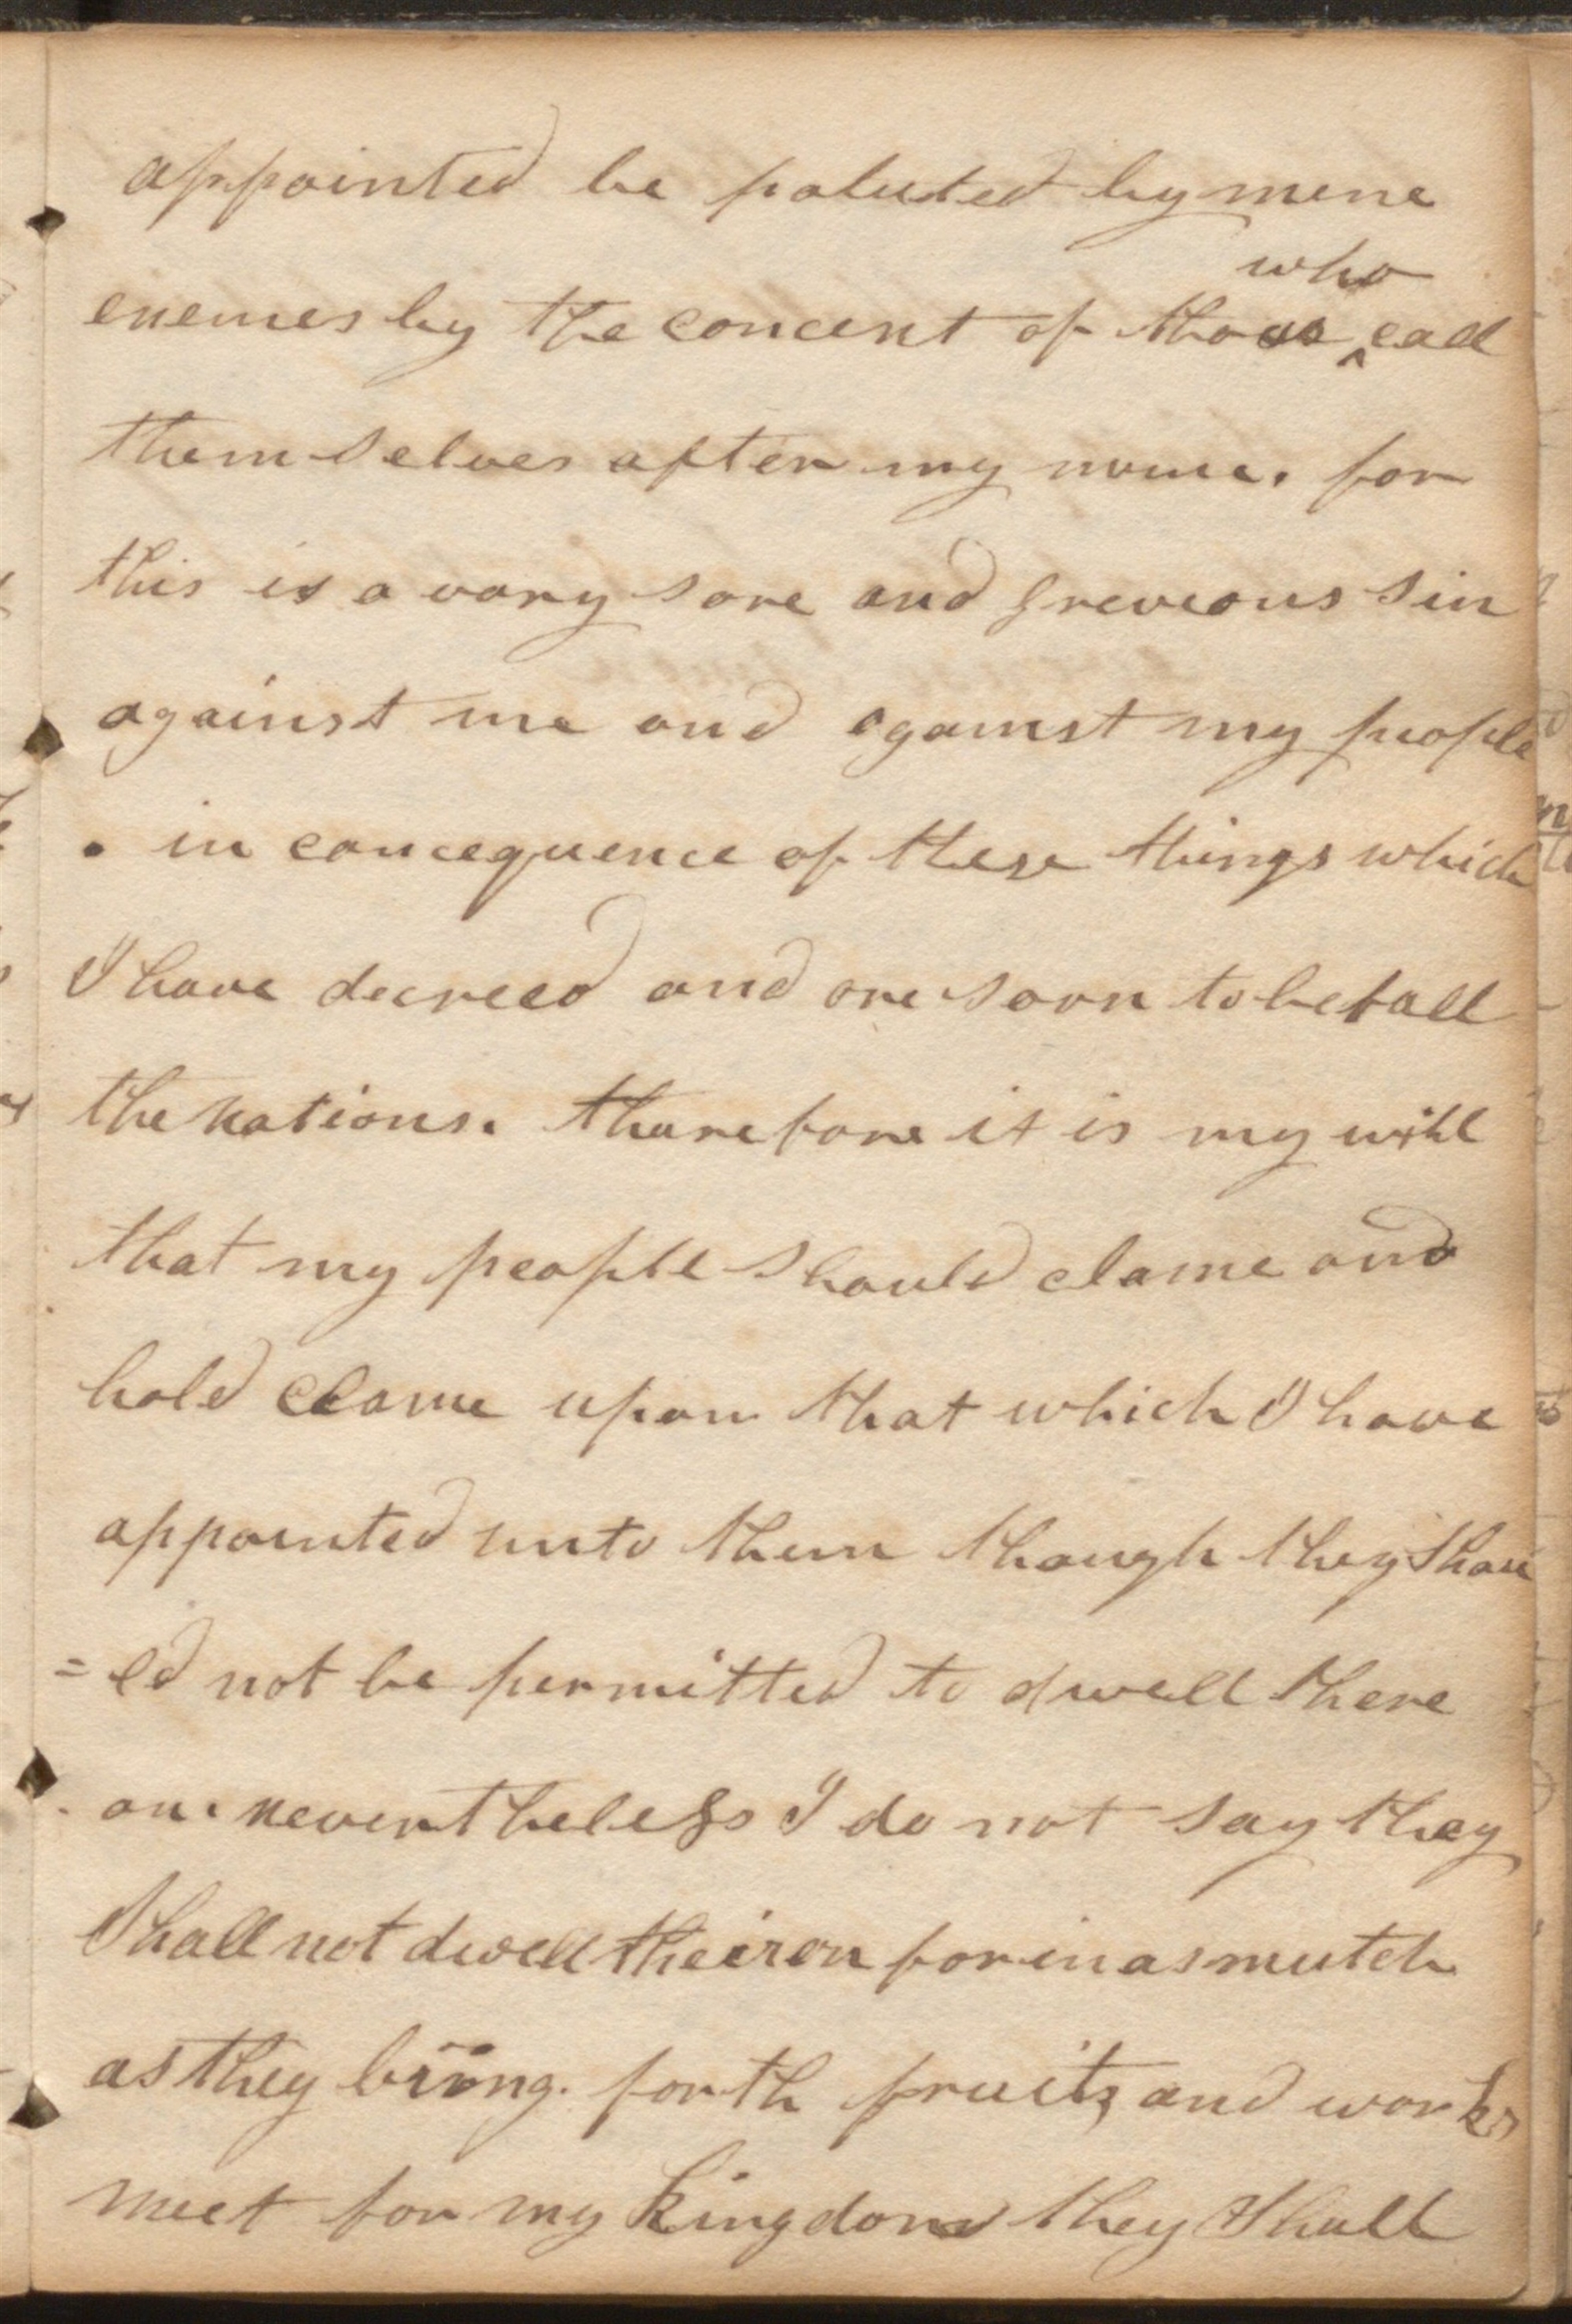 appointed be poluted by mine
who
enemes by the concent of thoss ‸ call
themselves after my name. for
this is a vary sore and greveous sin
against me and against my people
. in concequence of these things which
I have decreed and are soon to befall
the nations. tharefore it is my will
that my people should clame and
hold clame upon that which I have
appointed unto them though they shou
=ld not be permitted to dwell there
on. nevertheless I do not say they
Shall not dwell theiron for inasmutch
as they bring. forth fruits and works
meet for my kingdom they shall